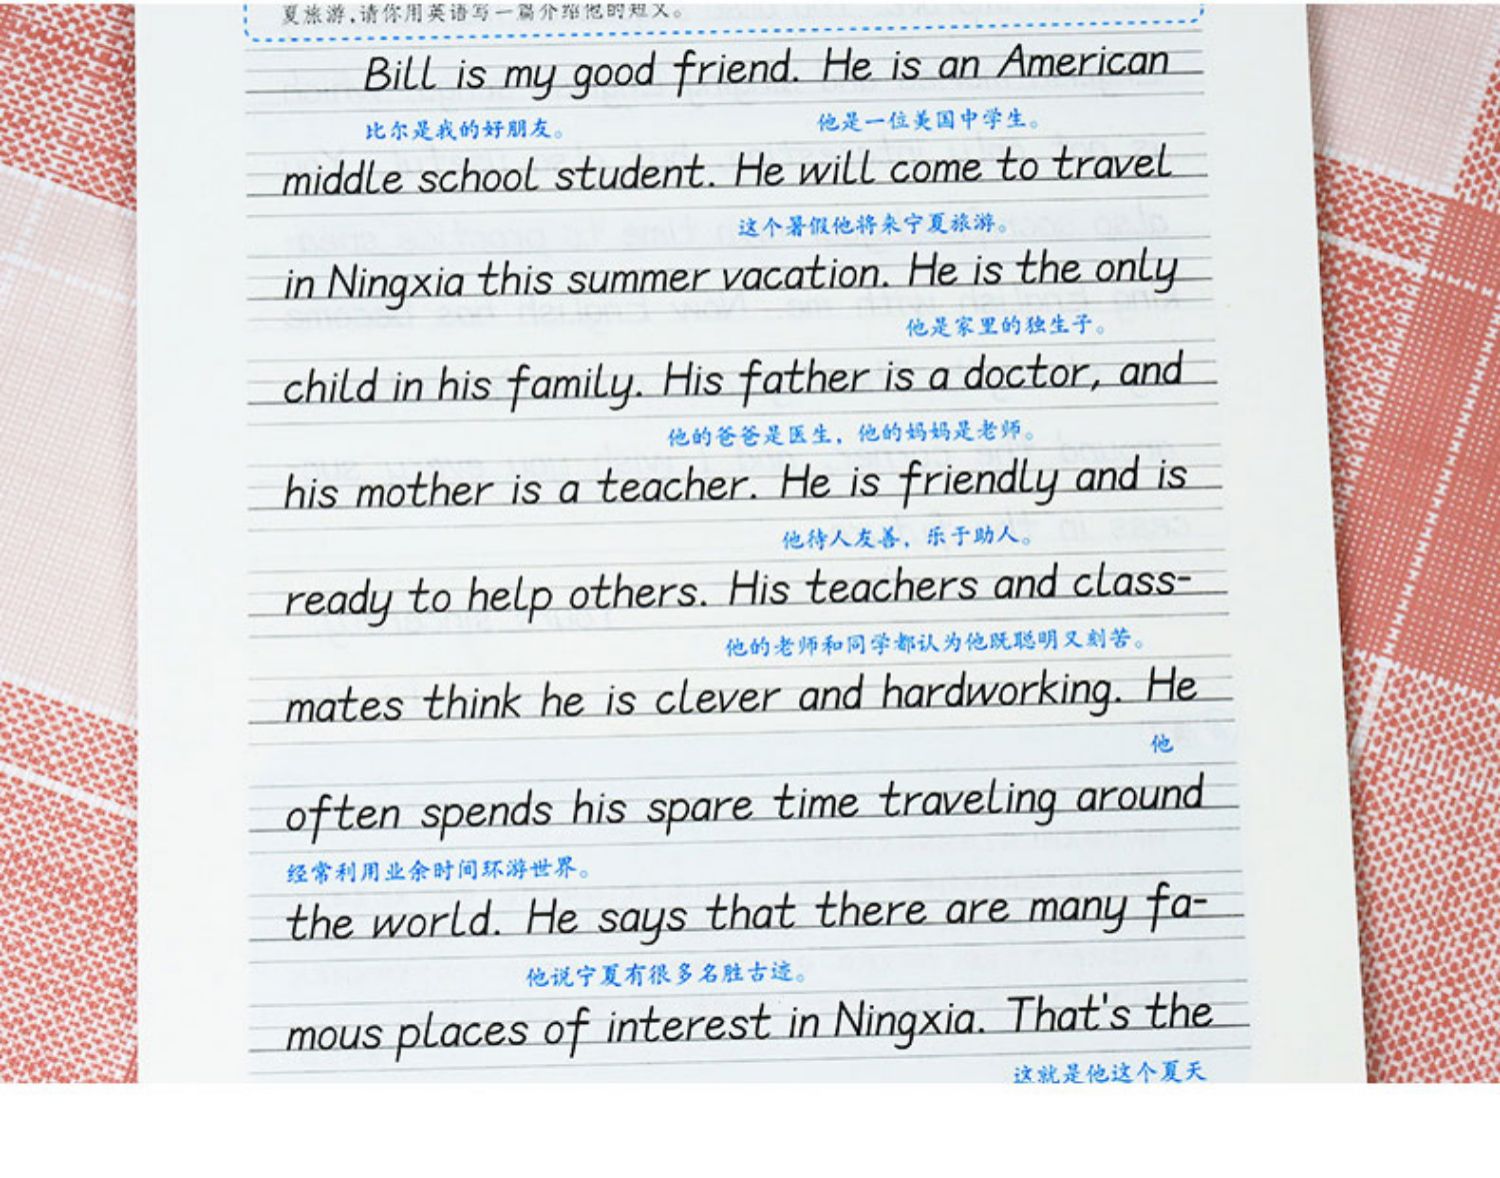 夏旅游，请你用英语写一篇介绍他的短文。
Bill is my good friend. He is an American
比尔是我的好朋友。 他是一位美国中学生。
middle school student. He will come to travel
这个暑假他将来宁夏旅游。
in Ningxia this summer vacation. He is the only
他是家里的独生子。
child in his family. His father is a doctor, and
他的爸爸是医生，他的妈妈是老师。
his mother is a teacher. He is friendly and is
他待人友善，乐于助人。
ready to help others. His teachers and class-
他的老师和同学都认为他既聪明又刻苦。
mates think he is clever and hardworking. He
他
often spends his spare time traveling around
经常利用业余时间环游世界。
the world. He says that there are many fa-
他说宁夏有很多名胜古迹。
mous places of interest in Ningxia. That's the
这就是他这个夏天